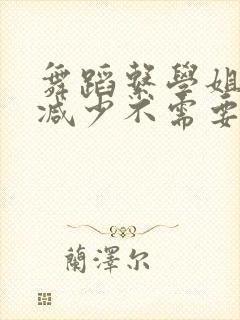 舞蹈繫學姐
減少不需要
蘭澤尔